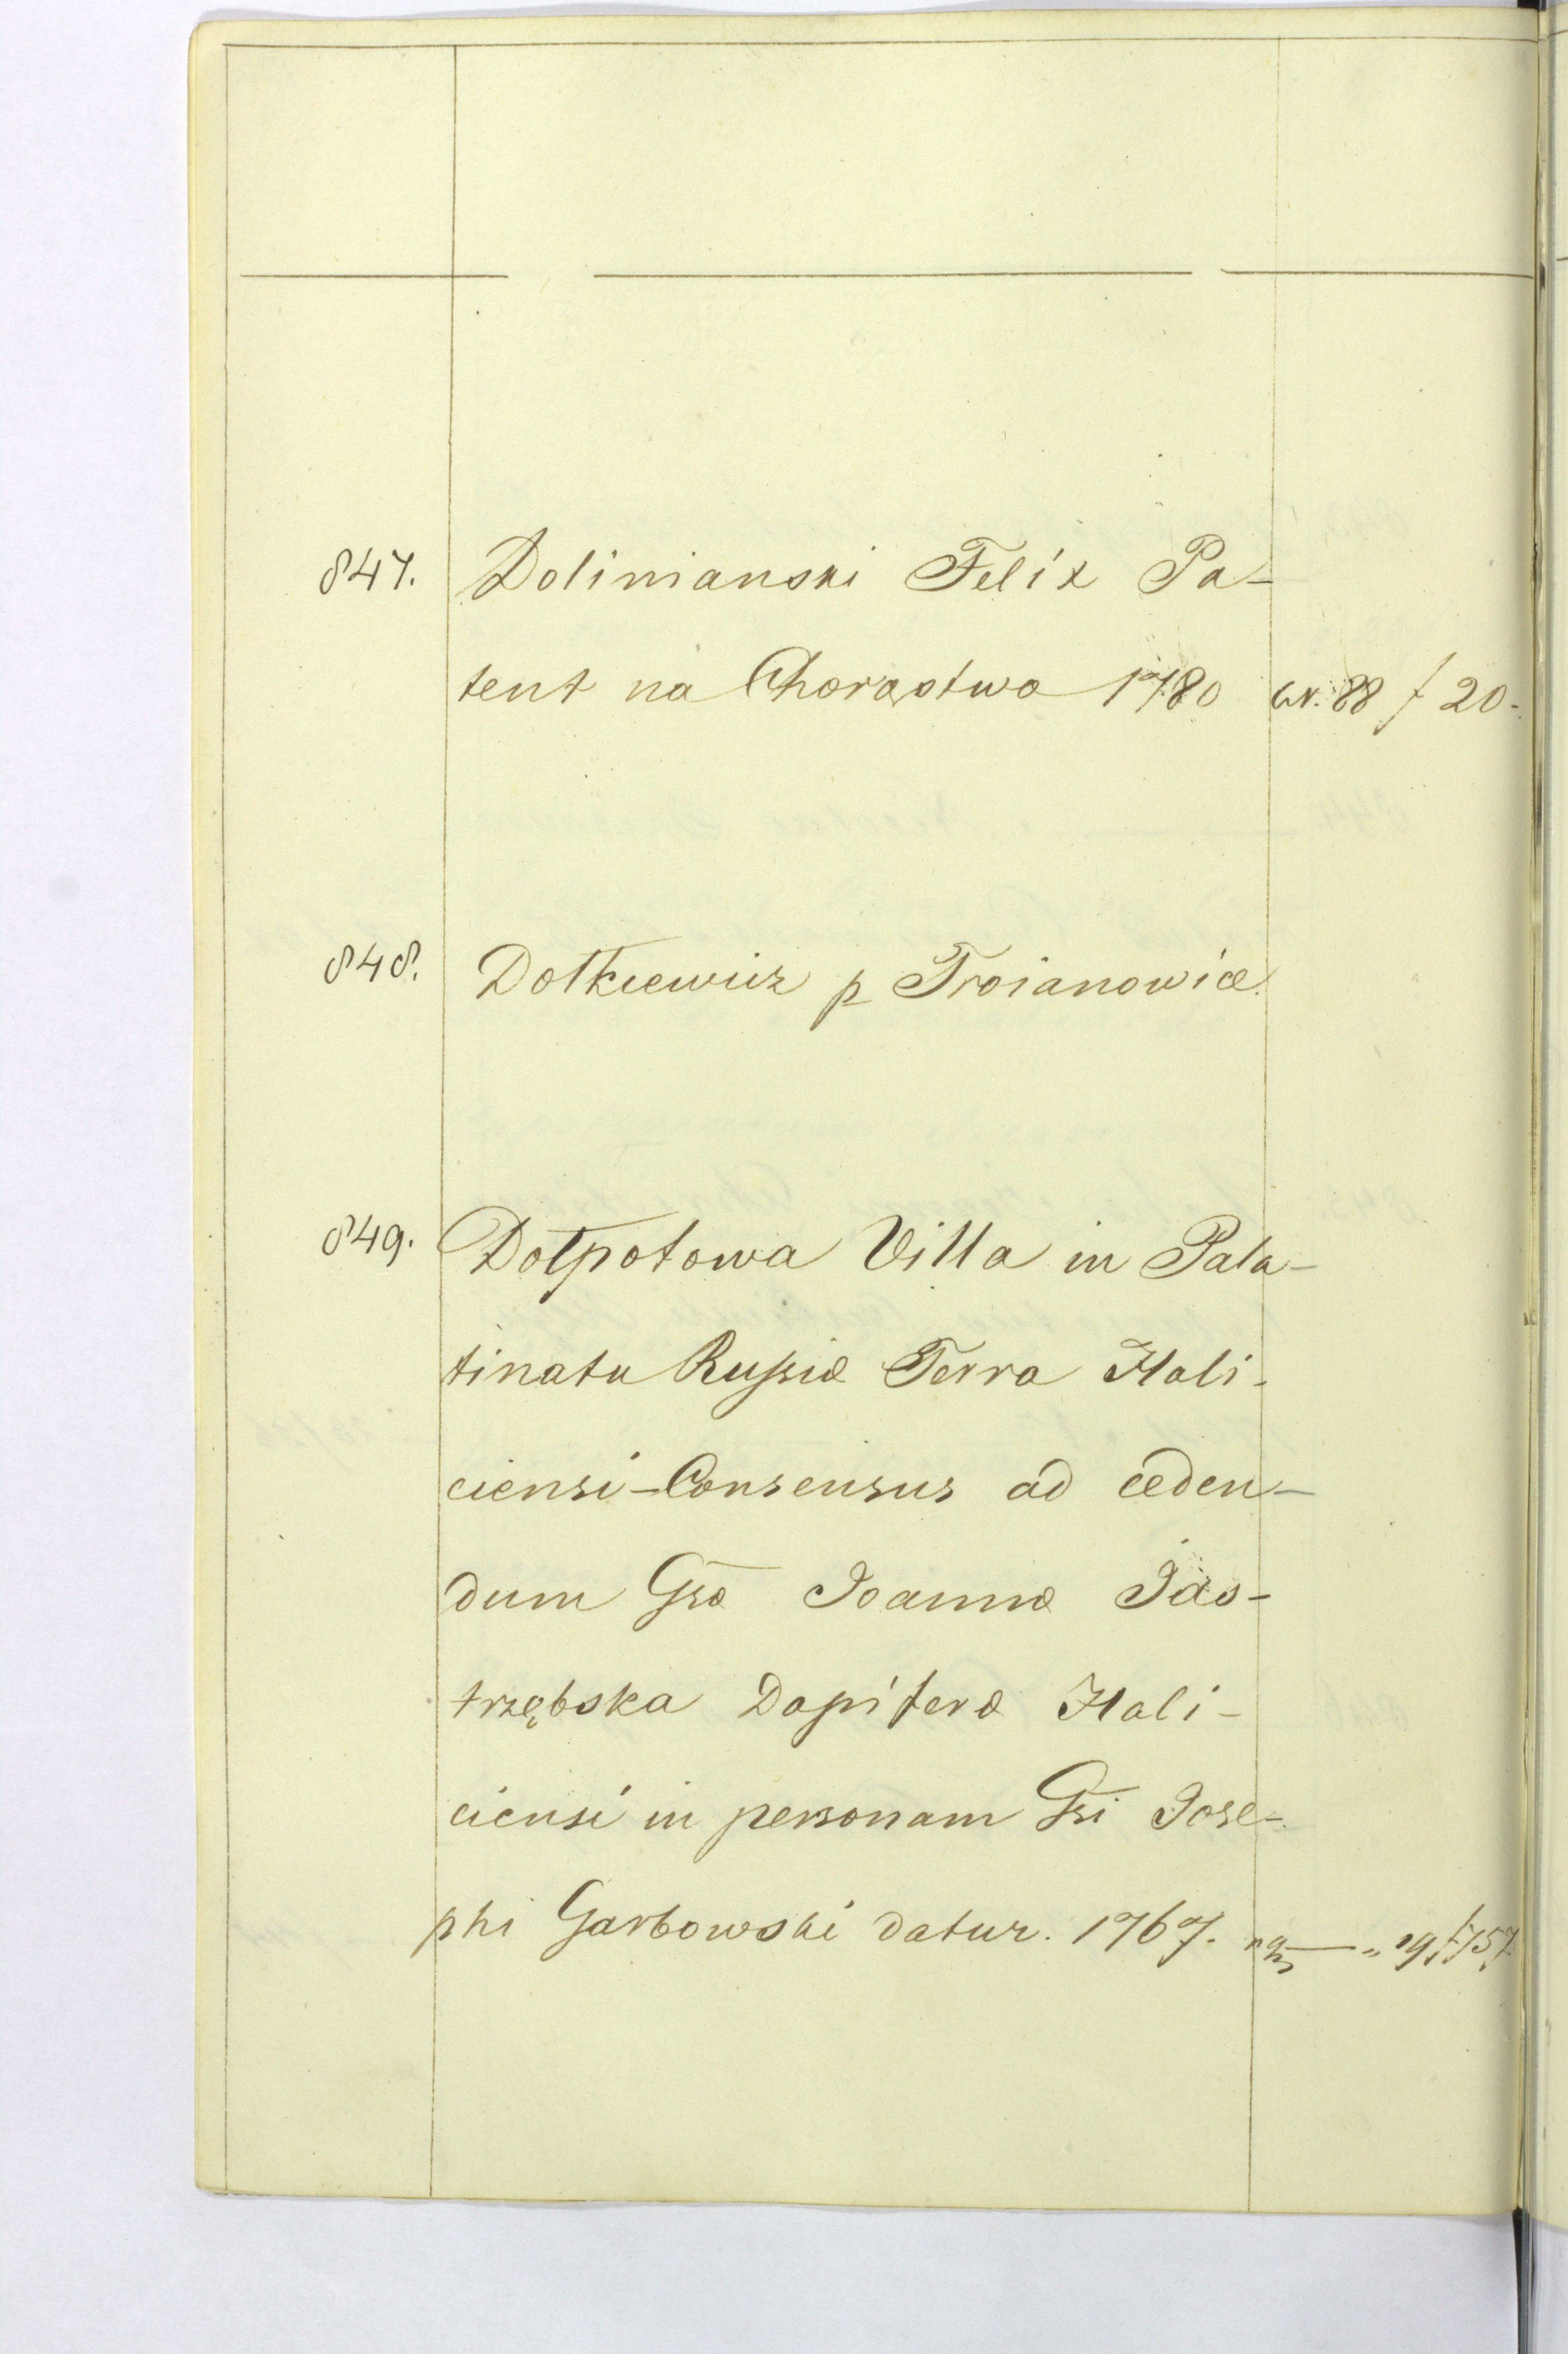 847. Dolinianski Felix Pa-
tent na Chorąstwo 1780 W. 88 f 20-
848. Dołkiewicz p Troianowice
849. Dołpotowa Villa in Pala-
tinatu Russiæ Terra Hali-
ciensi-Consensus ad ceden-
dum Gsæ Joannæ Jas-
trzębska Dapiferæ Hali-
ciensi in personam Gsi Jose-
phi Garbowski datur. 1767.